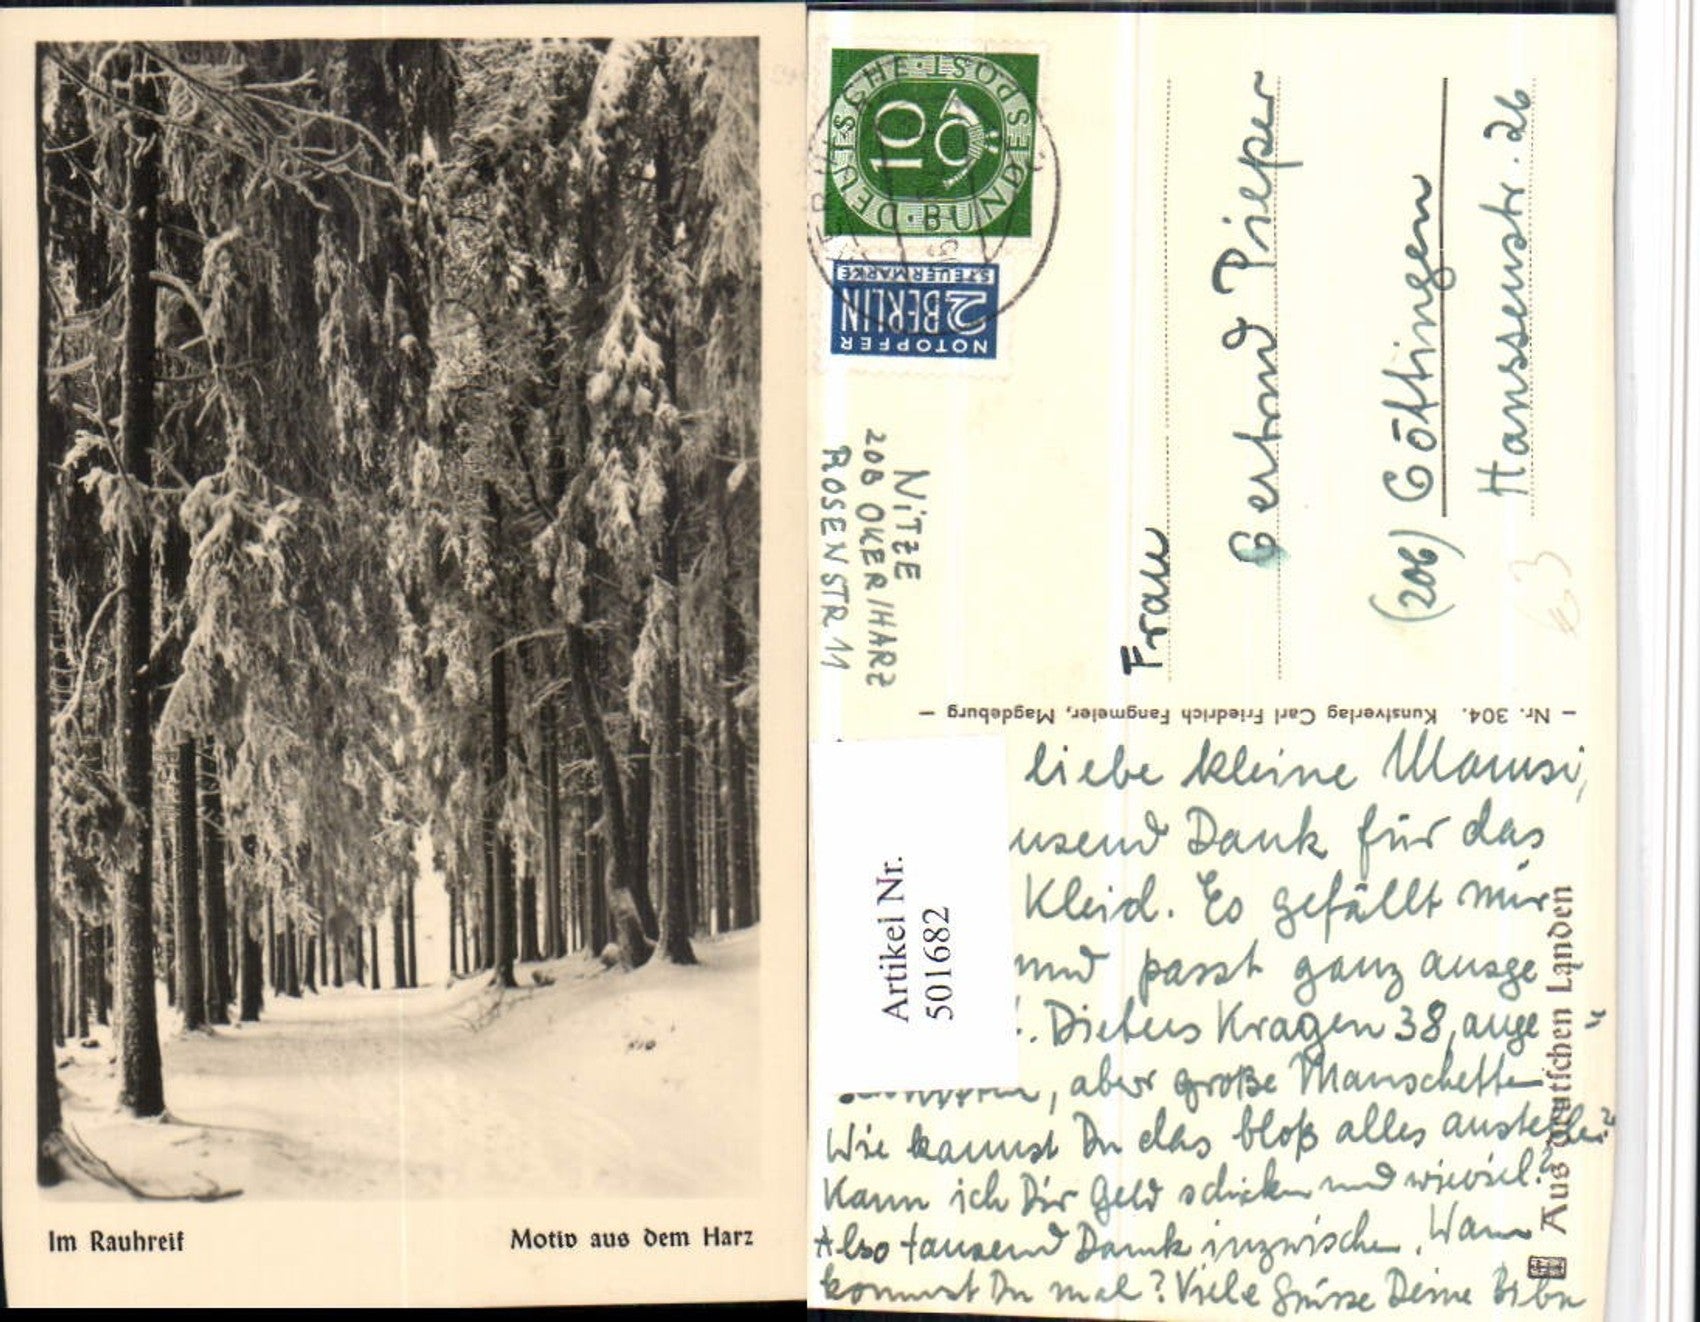 Im Rauhreif
Motiv aus dem Harz
DEUTSCHE · POST
DEUTSCHE BUNDESPOST
10
NOTOPFER
2 BERLIN
STEUERMARKE
NITZE
20B OKER/HARZ
ROSENSTR 11
Frau
Gertrud Pieper
(20b) Göttingen
Hanssenstr. 26
63
– Nr. 304. Kunstverlag Carl Friedrich Fangmeier, Magdeburg –
Artikel Nr.
501682
liebe kleine Mamusi,
usend Dank für das
Kleid. Es gefällt mir
und passt ganz ausge
. Dieters Kragen 38, auge
, aber große Manschetten
Wie kannst Du das bloß alles
Kann ich Dir Geld schicken und wieviel?
Also tausend Dank inzwischen. Wann
kommst Du mal? Viele Grüsse Deine
Aus deutschen Landen